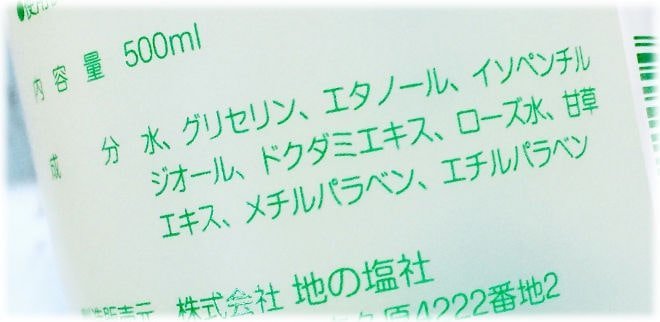 内容量 500ml
成分 水、グリセリン、エタノール、イソペンチル
ジオール、ドクダミエキス、ローズ水、甘草
エキス、メチルパラベン、エチルパラベン
販売元 株式会社 地の塩社
原4222番地2